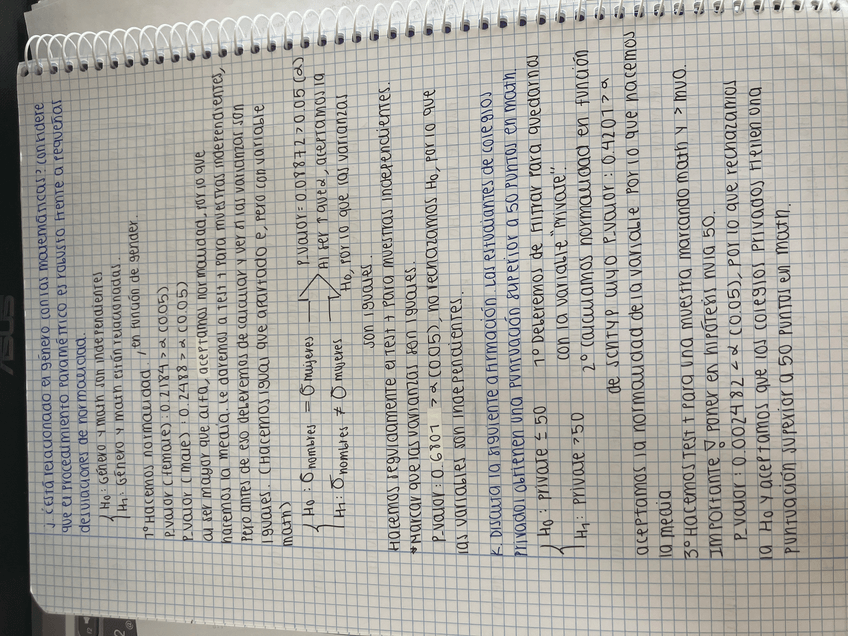 J. ¿Está relacionado el género con las matemáticas? Considere
que el procedimiento paramétrico es robusto frente a pequeñas
desviaciones de normalidad.
H0: Género y math son independientes
H1: Género y math están relacionadas.
1º Hacemos normalidad, en función de gender.
P.valor (female): 0.2184 > α (0.05)
P.valor (male): 0.2488 > α (0.05)
al ser mayor que alfa, aceptamos normalidad, por lo que
hacemos la media. Le daremos a test t para muestras independientes,
Pero antes de eso deberemos de calcular y ver si las varianzas son
iguales. (Hacemos igual que apartado e, pero con variable
math)
H0: σ hombres = σ mujeres → P.valor = 0.08872 > 0.05 (α)
H1: σ hombres ≠ σ mujeres Al ser ↑ que α, aceptamos la
H0, por lo que las varianzas
son iguales.
Hacemos seguidamente el test t para muestras independientes.
*Marcar que las varianzas son iguales.
P.valor: 0.6801 > α (0.05), no rechazamos H0, por lo que
las variables son independientes.
K. Discuta la siguiente afirmación: Los estudiantes de colegios
privados obtienen una puntuación superior a 50 puntos en math.
H0: private ≤ 50 1º Deberemos de filtrar para quedarnos
con la variable "Private".
H1: private > 50 2º Calculamos normalidad en función
de schtyp cuyo P.valor: 0.4207 > α
aceptamos la normalidad de la variable por lo que hacemos
la media
3º Hacemos Test t para una muestra marcando math y > mu0.
Importante ∇ poner en hipótesis nula 50.
P.valor: 0.002482 < α (0.05), por lo que rechazamos
la H0 y aceptamos que los colegios privados tienen una
puntuación superior a 50 puntos en math.